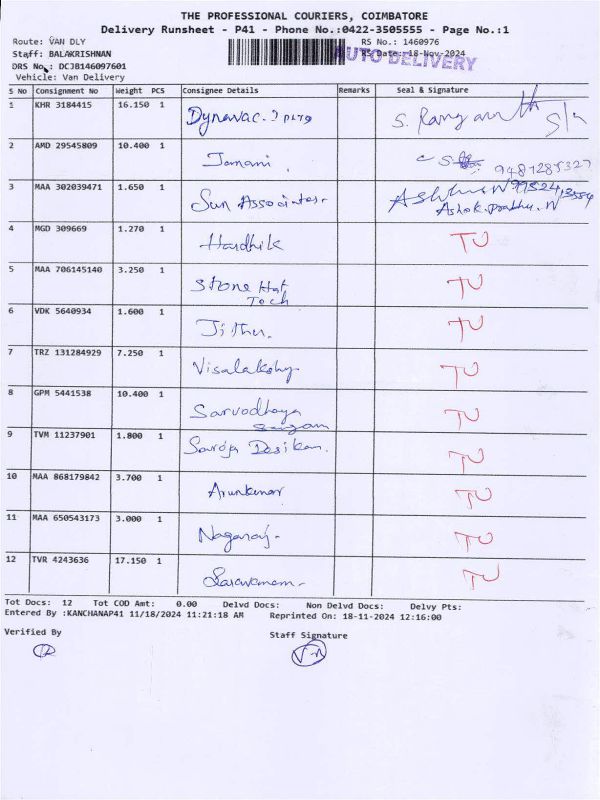 THE PROFESSIONAL COURIERS, COIMBATORE
Delivery Runsheet - P41 - Phone No.:0422-3505555 - Page No.:1
Route: VAN DLY RS No.: 1460976
Staff: BALAKRISHNAN RS Date: 18-Nov-2024
AUTO DELIVERY
DRS No.: DCJB146097601
Vehicle: Van Delivery
S No Consignment No Weight PCS Consignee Details Remarks Seal & Signature
1 KHR 3184415 16.150 1 Dynavac.
2 AMD 29545809 10.400 1 Jamani. 9487285327
3 MAA 302039471 1.650 1 Sun Associates. Ashok.prabhu.N
4 MGD 309669 1.270 1 Hardhik TU
5 MAA 706145140 3.250 1 Stone Hat Tech TU
6 VDK 5640934 1.600 1 Jithu. TU
7 TRZ 131284929 7.250 1 Visalakshy TU
8 GPM 5441538 10.400 1 Sarvodhaya TU
9 TVM 11237901 1.800 1 Saroja Desikan. TU
10 MAA 868179842 3.700 1 Arunkumar TU
11 MAA 650543173 3.000 1 Nagaraj- TU
12 TVR 4243636 17.150 1 Saravanan- TU
Tot Docs: 12 Tot COD Amt: 0.00 Delvd Docs: Non Delvd Docs: Delvy Pts:
Entered By :KANCHANAP41 11/18/2024 11:21:18 AM Reprinted On: 18-11-2024 12:16:00
Verified By Staff Signature